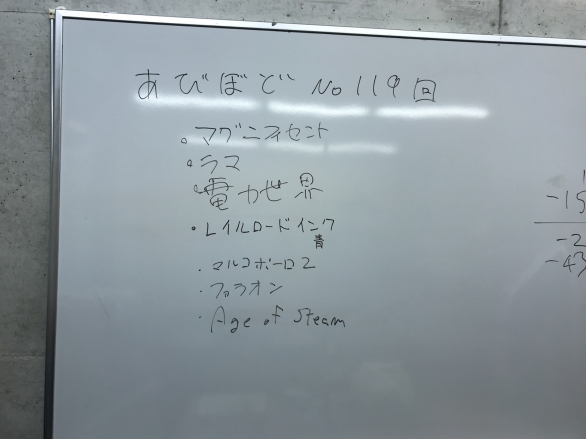 あびぼど No 119回
・マグニフィセント
・ラマ
・電力世界
・レイルロードインク
青
・マルコポーロ2
・ファラオン
・Age of Steam
-15
-2
-43